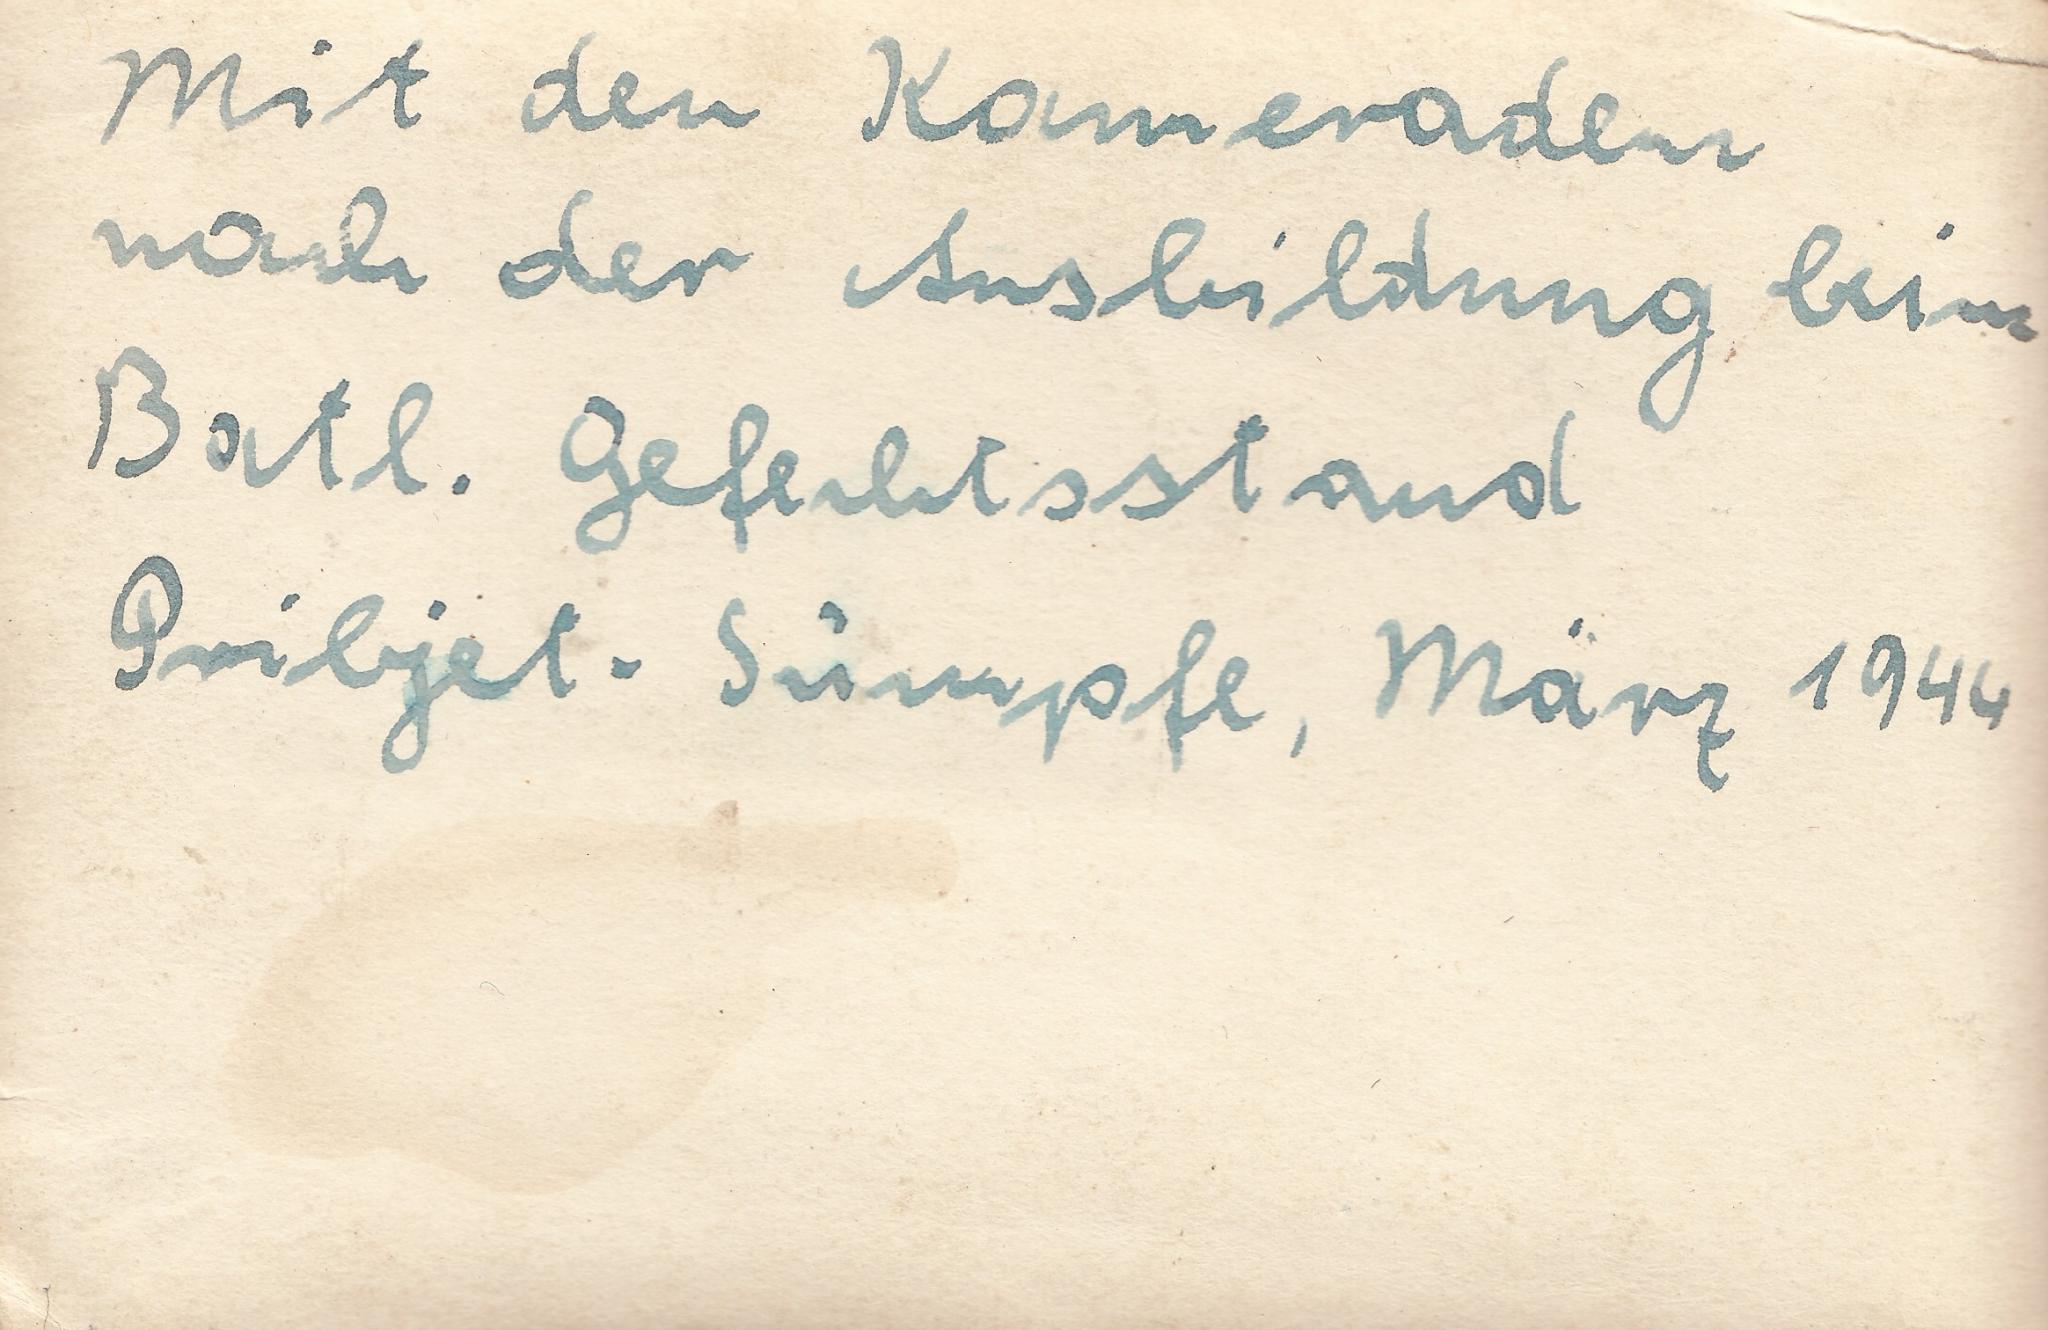 Mit den Kameraden
nach der Ausbildung beim
Batl. Gefechtsstand
Pribjet-Sümpfe, März 1944